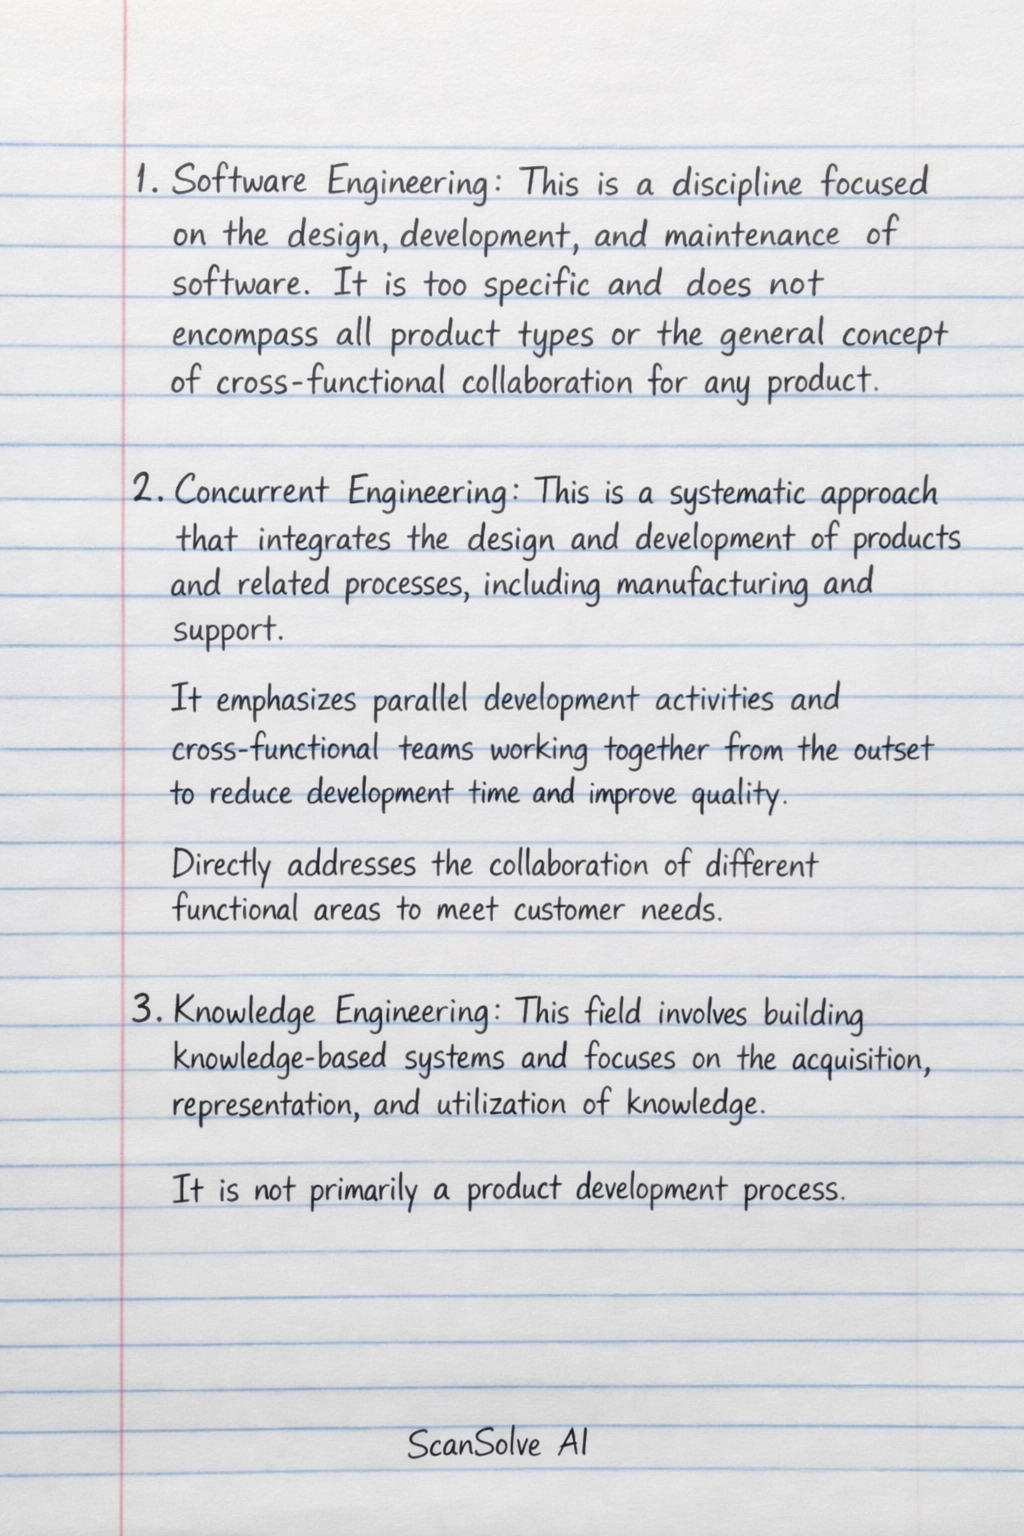 1. Software Engineering: This is a discipline focused
on the design, development, and maintenance of
software. It is too specific and does not
encompass all product types or the general concept
of cross-functional collaboration for any product.
2. Concurrent Engineering: This is a systematic approach
that integrates the design and development of products
and related processes, including manufacturing and
support.
It emphasizes parallel development activities and
cross-functional teams working together from the outset
to reduce development time and improve quality.
Directly addresses the collaboration of different
functional areas to meet customer needs.
3. Knowledge Engineering: This field involves building
knowledge-based systems and focuses on the acquisition,
representation, and utilization of knowledge.
It is not primarily a product development process.
ScanSolve AI